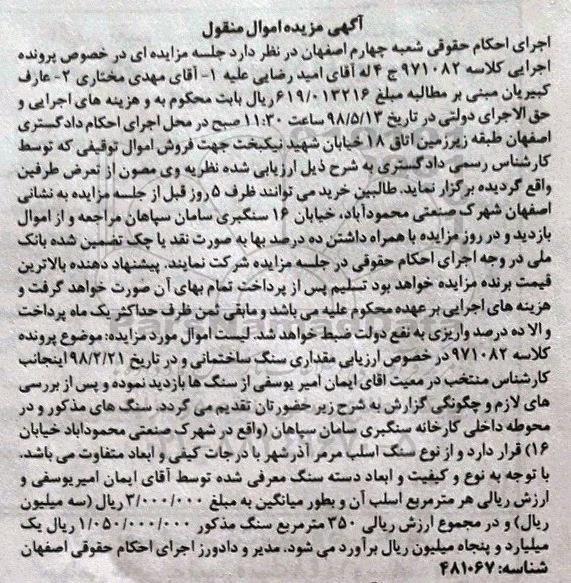 آگهی مزیده اموال منقول
اجرای احکام حقوقی شعبه چهارم اصفهان در نظر دارد جلسه مزایده ای در خصوص پرونده
اجرایی کلاسه ۹۷۱۰۸۲ ج ۴ له آقای امید رضایی علیه ۱- آقای مهدی مختاری ۲- عارف
کبیریان مبنی بر مطالبه مبلغ ۶۱۹/۰۱۳۲۱۶ ریال بابت محکوم به و هزینه های اجرایی و
حق الاجرای دولتی در تاریخ ۹۸/۵/۱۳ ساعت ۱۱:۳۰ صبح در محل اجرای احکام دادگستری
اصفهان طبقه زیرزمین اتاق ۱۸ خیابان شهید نیکبخت جهت فروش اموال توقیفی که توسط
کارشناس رسمی دادگستری به شرح ذیل ارزیابی شده نظریه وی مصون از تعرض طرفین
واقع گردیده برگزار نماید. طالبین خرید می توانند ظرف ۵ روز قبل از جلسه مزایده به نشانی
اصفهان شهرک صنعتی محمودآباد، خیابان ۱۶ سنگبری سامان سپاهان مراجعه و از اموال
بازدید و در روز مزایده با همراه داشتن ده درصد بها به صورت نقد یا چک تضمین شده بانک
ملی در وجه اجرای احکام حقوقی در جلسه مزایده شرکت نمایند. پیشنهاد دهنده بالاترین
قیمت برنده مزایده خواهد بود تسلیم پس از پرداخت تمام بهای آن صورت خواهد گرفت و
هزینه های اجرایی بر عهده محکوم علیه می باشد و مابقی ثمن ظرف حداکثر یک ماه پرداخت
و الا ده درصد واریزی به نفع دولت ضبط خواهد شد. لیست اموال مورد مزایده: موضوع پرونده
کلاسه ۹۷۱۰۸۲ در خصوص ارزیابی مقداری سنگ ساختمانی و در تاریخ ۹۸/۲/۲۱ اینجانب
کارشناس منتخب در معیت اقای ایمان امیر یوسفی از سنگ ها بازدید نموده و پس از بررسی
های لازم و چگونگی گزارش به شرح زیر حضورتان تقدیم می گردد. سنگ های مذکور و در
محوطه داخلی کارخانه سنگبری سامان سپاهان (واقع در شهرک صنعتی محموداباد خیابان
۱۶) قرار دارد و از نوع سنگ اسلب مرمر آذرشهر با درجات کیفی و ابعاد متفاوت می باشد.
با توجه به نوع و کیفیت و ابعاد دسته سنگ معرفی شده توسط آقای ایمان امیریوسفی و
ارزش ریالی هر مترمربع اسلب آن و بطور میانگین به مبلغ ۳/۰۰۰/۰۰۰ ریال (سه میلیون
ریال) و در مجموع ارزش ریالی ۳۵۰ مترمربع سنگ مذکور ۱/۰۵۰/۰۰۰/۰۰۰ ریال یک
میلیارد و پنجاه میلیون ریال برآورد می شود. مدیر و دادورز اجرای احکام حقوقی اصفهان
شناسه: ۴۸۱۰۶۷